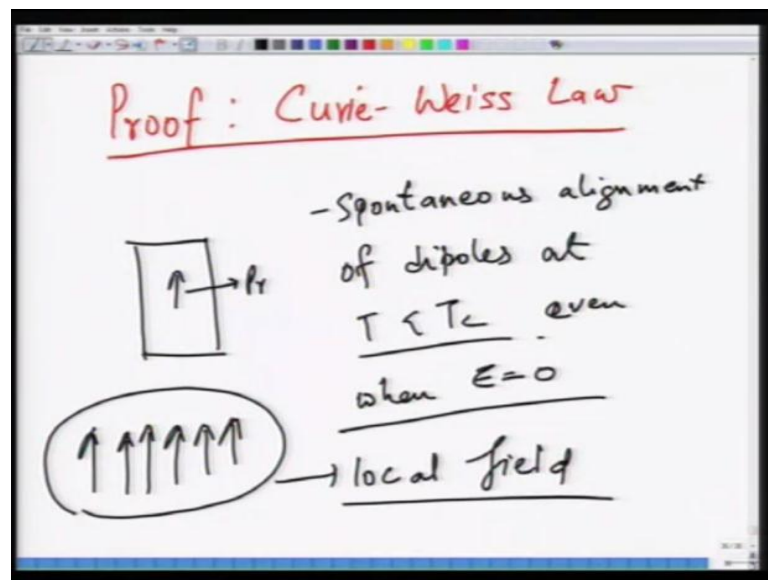 Proof : Curie-Weiss Law
- Spontaneous alignment
of dipoles at
T < Tc even
when E=0
Pr
→ local field